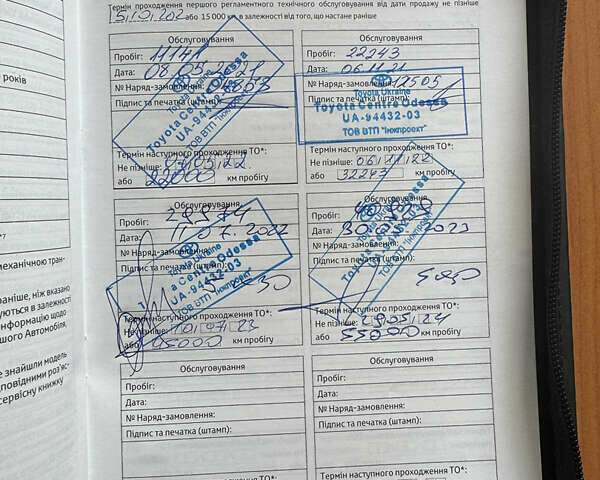 Термін проходження першого регламентного технічного обслуговування від дати продажу не пізніше
або 15 000 км, в залежності від того, що настане раніше
Обслуговування
Пробіг: 11141
Дата: 08 05 2021
№ Наряд-замовлення:
Підпис та печатка (штамп):
Toyota Ukraine
Toyota Centre Odessa
UA-94432-03
ТОВ ВТП "Інжпроект"
Термін наступного проходження ТО*:
Не пізніше: 07.05.22
або км пробігу
Обслуговування
Пробіг: 22243
Дата: 06.11.21
№ Наряд-замовлення: 12505
Підпис та печатка (штамп):
Toyota Ukraine
Toyota Centre Odessa
UA-94432-03
ТОВ ВТП "Інжпроект"
Термін наступного проходження ТО*:
Не пізніше: 06.11.22
або 32243 км пробігу
Обслуговування
Пробіг: 29374
Дата: 11.07.2022
№ Наряд-замовлення:
Підпис та печатка (штамп):
Ukraine
a Centre Odessa
UA-94432-03
ТОВ ВТП "Інжпроект"
Термін наступного проходження ТО*:
Не пізніше: 10.07.23
або 45000 км пробігу
Обслуговування
Пробіг:
Дата: 30 2023
№ Наряд-замовлення:
Підпис та печатка (штамп):
Термін наступного проходження ТО*:
Не пізніше: 29.05.24
або 55000 км пробігу
Обслуговування
Пробіг:
Дата:
№ Наряд-замовлення:
Підпис та печатка (штамп):
Термін наступного проходження ТО*:
Обслуговування
Пробіг:
Дата:
№ Наряд-замовлення:
Підпис та печатка (штамп):
Термін наступного проходження ТО*:
років
механічною тран-
раніше, ніж вказано
в залежності
інформацію щодо
шого Автомобіля.
е знайшли модель
повідними роз'яс-
сервісну книжку